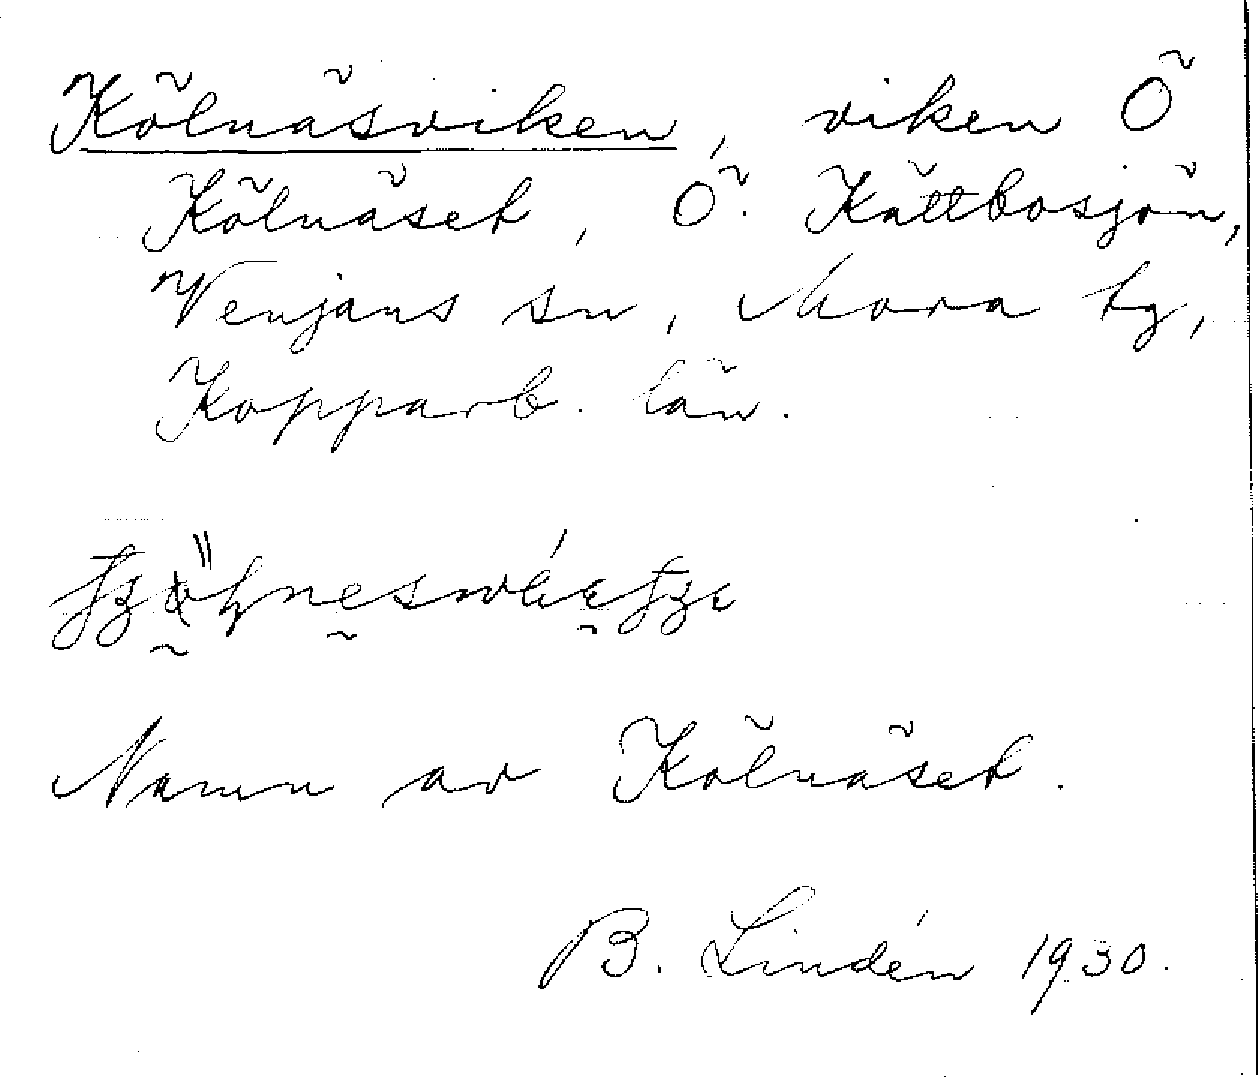 Kölnäsviken, viken Ö
Kölnäset, Ö. Kättbosjön,
Venjans sn, Mora tg,
Kopparb. län.
Namn av Kölnäset.
B. Lindén 1930.